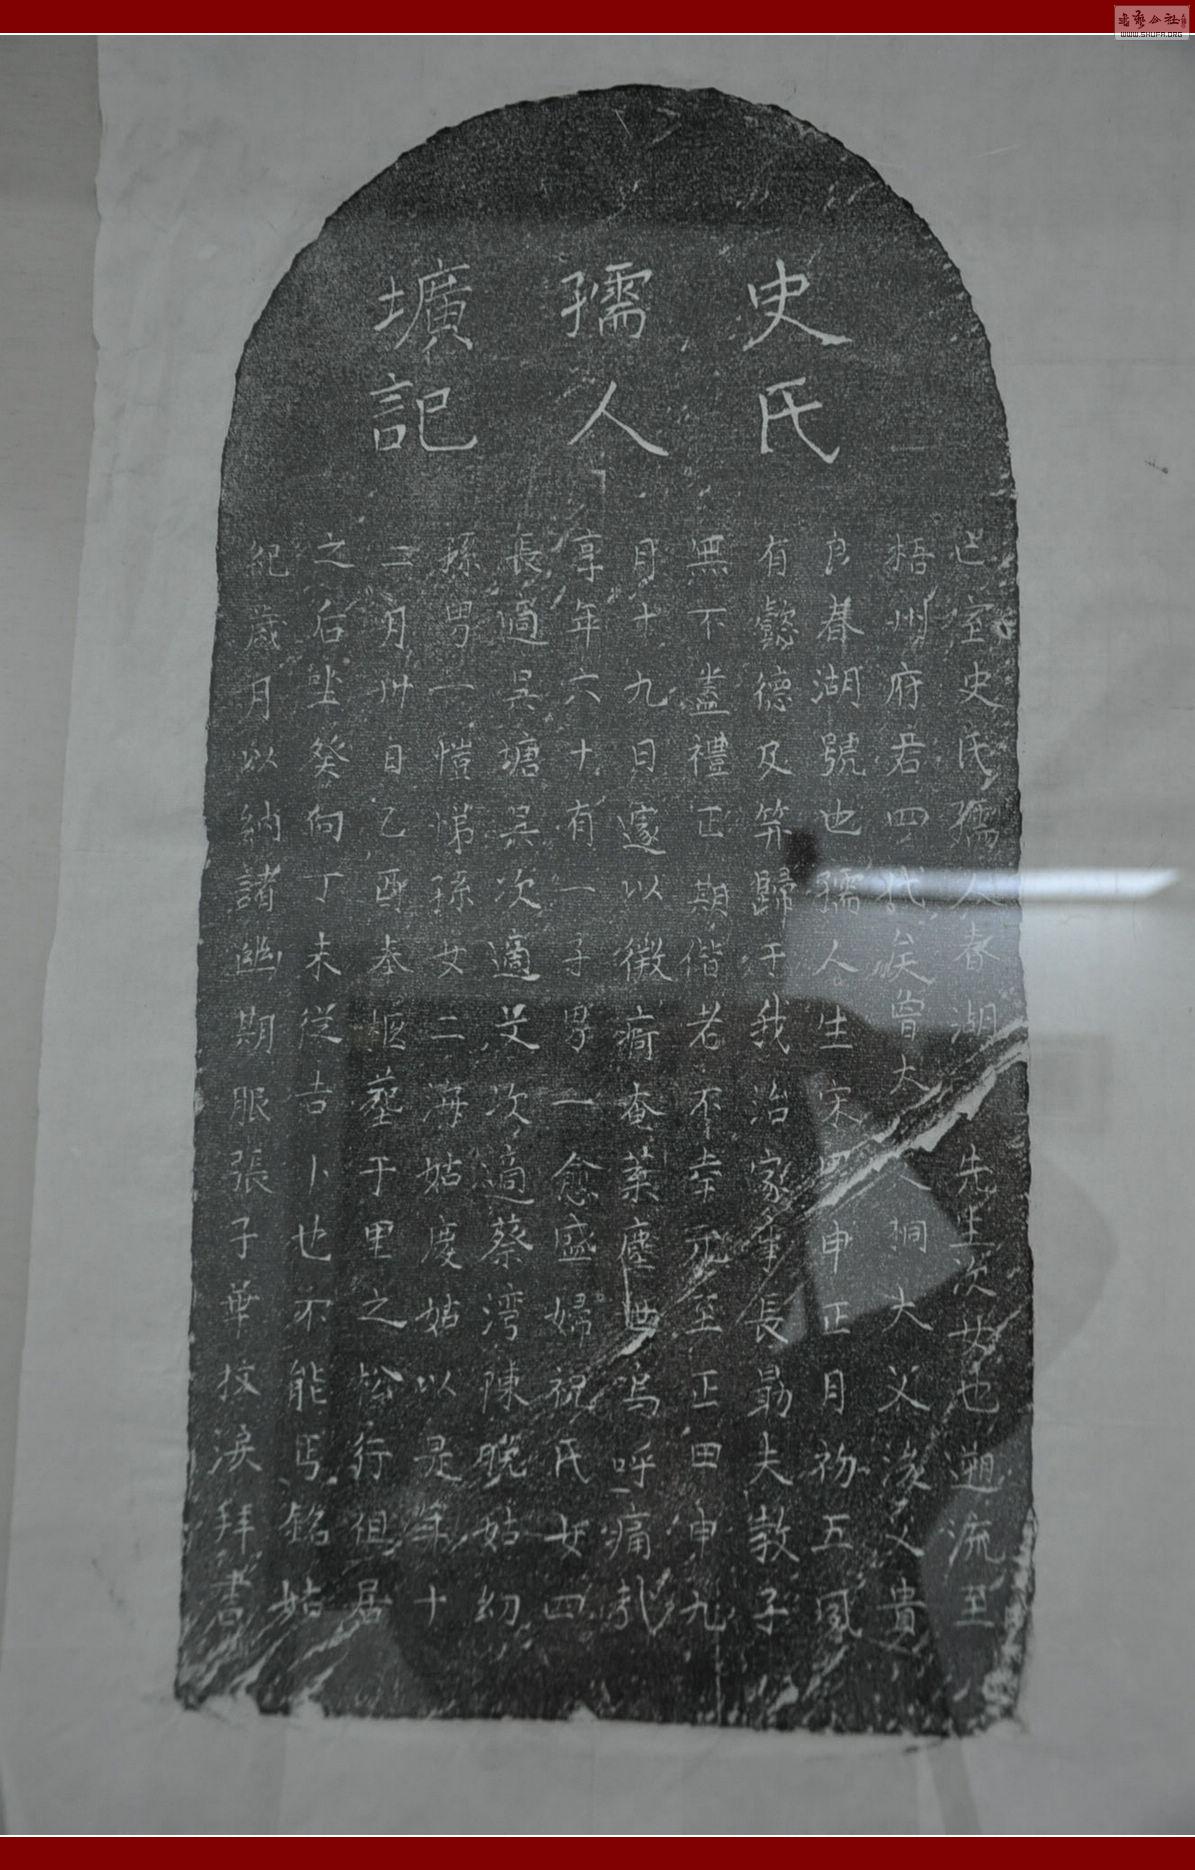 史氏
孺人
壙記
亡室史氏孺人春湖先生次女也遡流至
梧州府君四代矣曾大父桐大父浚父貴
良春湖號也孺人生宋甲申正月初五夙
有懿德及笄歸于我治家事長勗夫教子
無不盡禮正期偕老不幸元至正甲申九
月十九日遽以微痾奄棄塵世嗚呼痛哉
享年六十有一子男一愈盛婦祝氏女四
長適吳塘吳次適艾次適蔡灣陳晚姑幼
孫男一愷悌孫女二海姑慶姑以是年十
二月卅日乙酉奉柩塟于里之松行徂居
之后坐癸向丁未從吉卜也不能丐銘姑
紀歲月以納諸幽期服張子華抆淚拜書
WWW.SHUFA.ORG